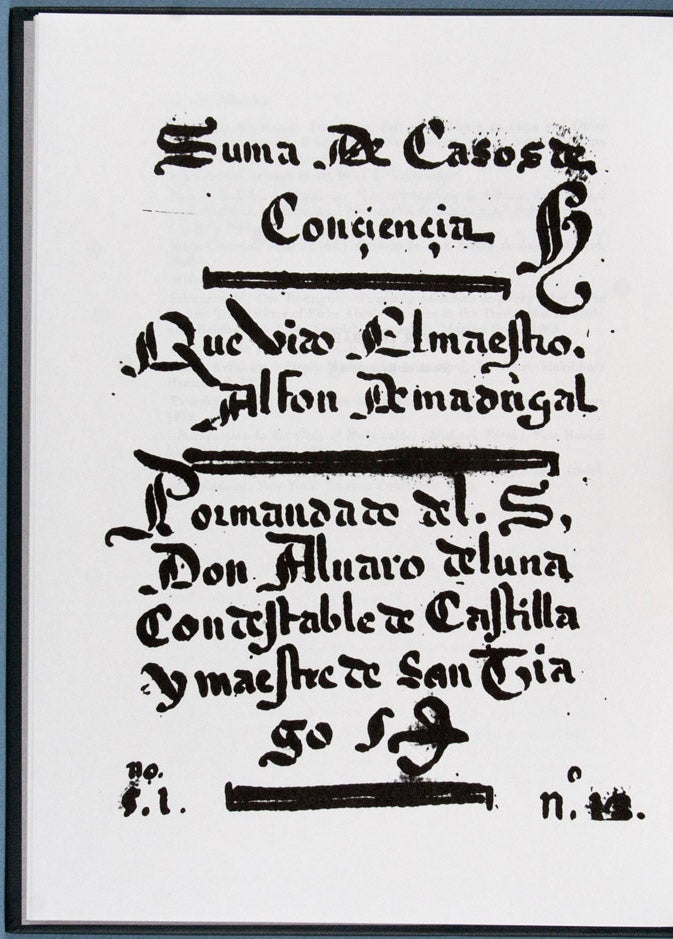 Suma De Casos de
Conçiençia
Que Vido El maestro.
Alfon De madrigal
Por mandado del. S,
Don Aluaro de luna
Condestable de Castilla
y maestre de San Tia
go
nº.